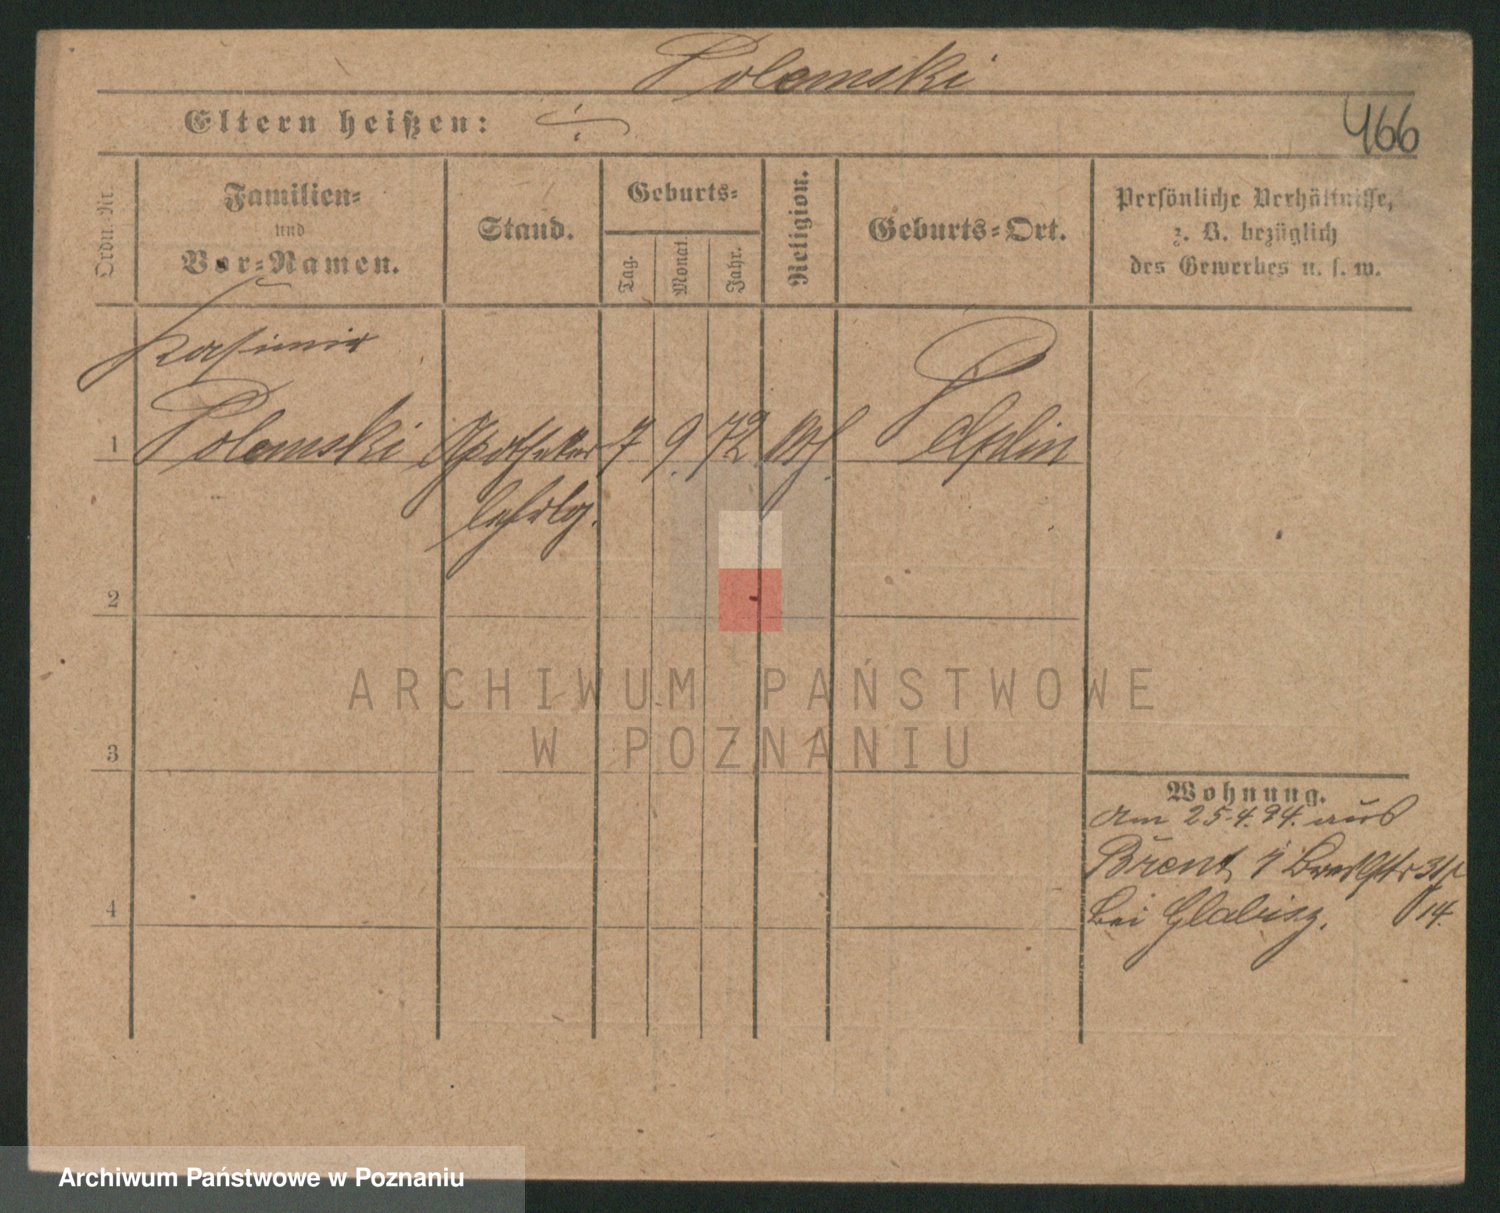 Polomski
Eltern heißen:
466
Ordn. Nr.
Familien-
und
Vor-Namen.
Stand.
Geburts-
Tag.
Monat.
Jahr.
Religion.
Geburts-Ort.
Persönliche Verhältnisse,
z. B. bezüglich
des Gewerbes u. s. w.
Kasimir
1 Polomski Apotheker 7 9. 72 kth. Pelplin
lehrlg.
2
3
4
Wohnung.
Am 25.4.94. aus
Brent
bei Glabisz. 14.
ARCHIWUM PAŃSTWOWE
W POZNANIU
Archiwum Państwowe w Poznaniu